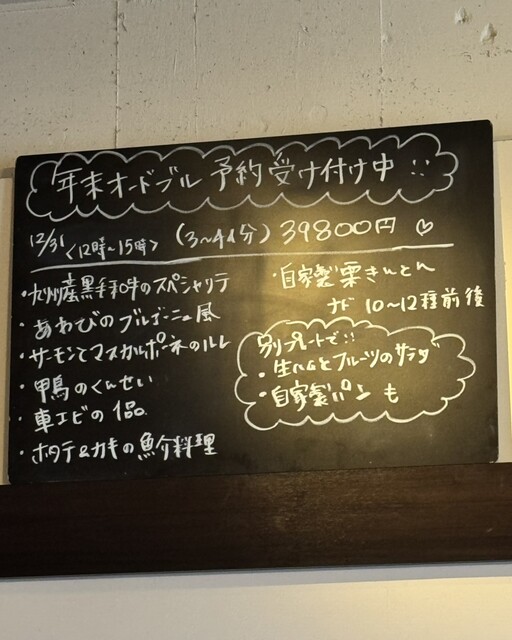 年末オードブル 予約受け付け中!!
12/31 <12時~15時> (3~4人分) 39800円 ♡
・九州産黒毛和牛のスペシャリテ
・あわびのブルゴーニュ風
・サーモンとマスカルポーネのルレ
・鴨のくんせい
・車エビの1品
・ホタテ&カキの魚介料理
・自家製栗きんとん
など 10~12種前後
別プレートで!!
・生ハムとフルーツのサラダ
・自家製パン も